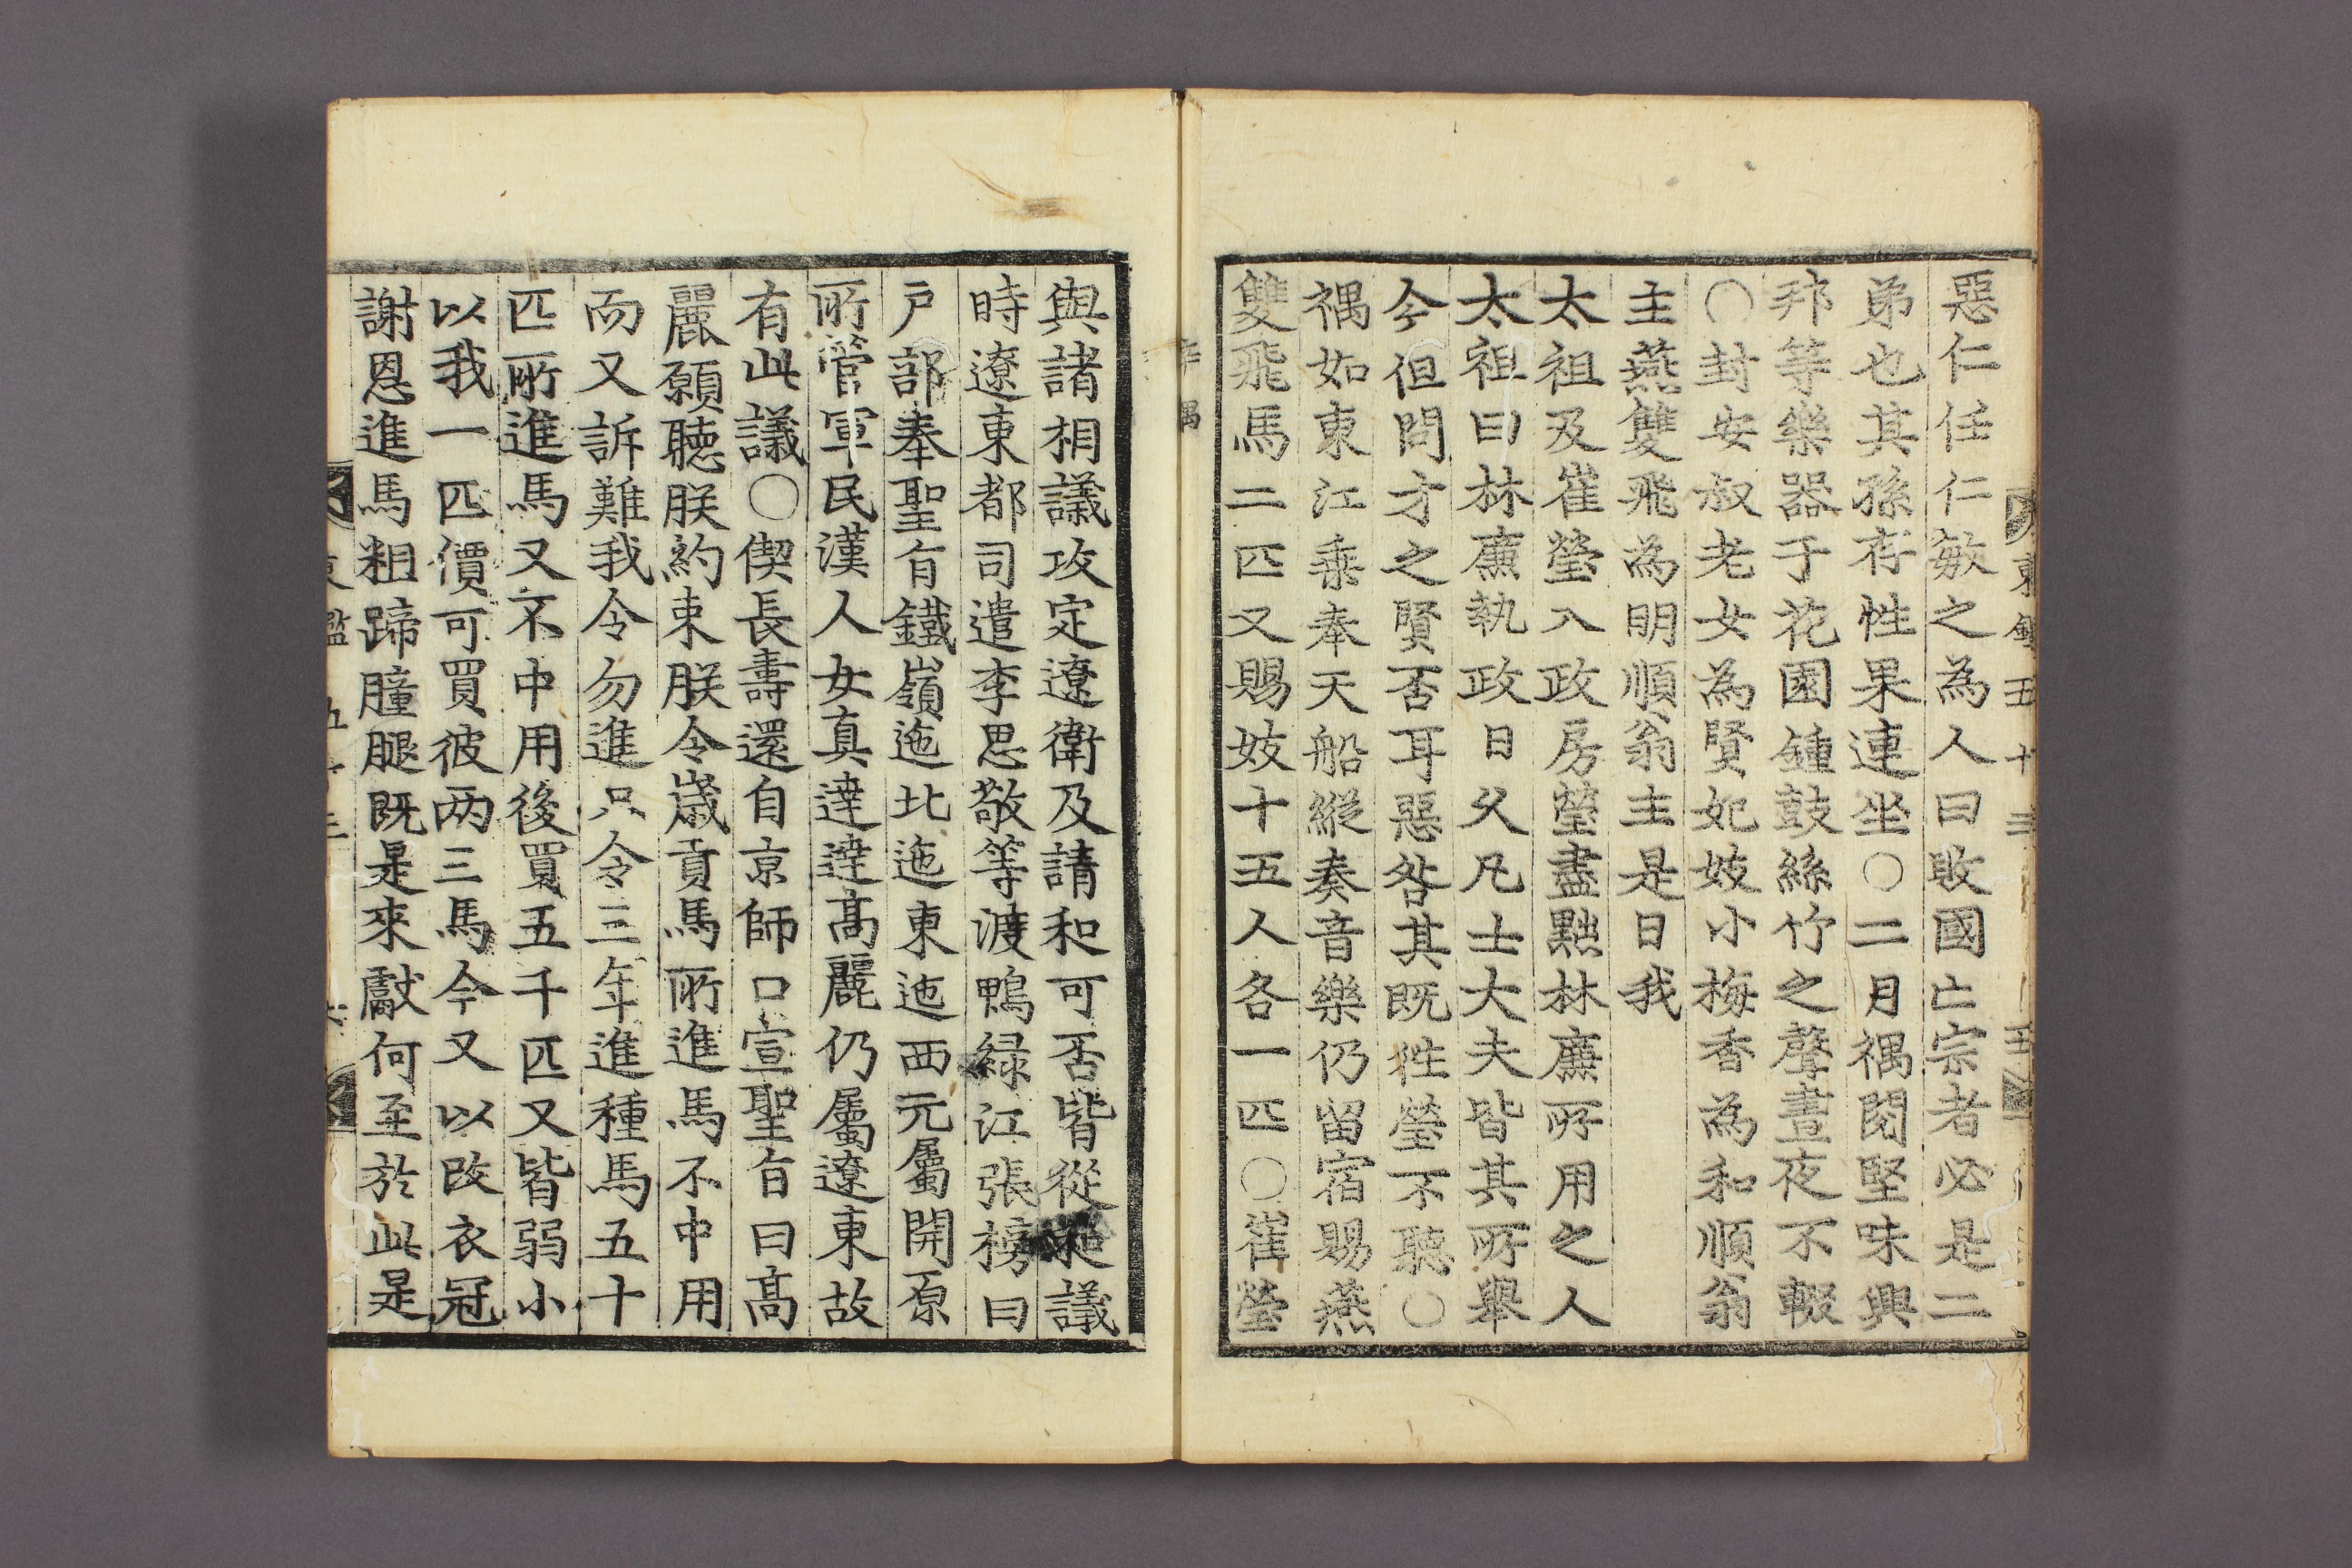 惡仁任仁敏之為人曰敗國亡宗者必是二
弟也其孫存性果連坐○二月禑閱堅味興
邦等樂器于花園鍾鼓絲竹之聲晝夜不輟
○封安叔老女為賢妃妓小梅香為和順翁
主燕雙飛為明順翁主是日我
太祖及崔瑩入政房瑩盡黜林廉所用之人
太祖曰林廉執政日久凡士大夫皆其所擧
今但問才之賢否耳惡咎其旣徃瑩不聽○
禑如東江乗奉天船縱奏音樂仍留宿賜燕
雙飛馬二匹又賜妓十五人各一匹○崔瑩
辛禑
與諸相議攻定遼衛及請和可否皆從和議
時遼東都司遣李思敬等渡鴨綠江張榜曰
戶部奉聖旨鐵嶺迤北迤東迤西元屬開原
所管軍民漢人女真達達高麗仍屬遼東故
有此議○偰長壽還自京師口宣聖旨曰高
麗願聽朕約束朕令歲貢馬所進馬不中用
而又訴難我令勿進只令三年進種馬五十
匹所進馬又不中用後買五千匹又皆弱小
以我一匹價可買彼两三馬今又以改衣冠
謝恩進馬粗蹄膧腿旣是來獻何至於此是